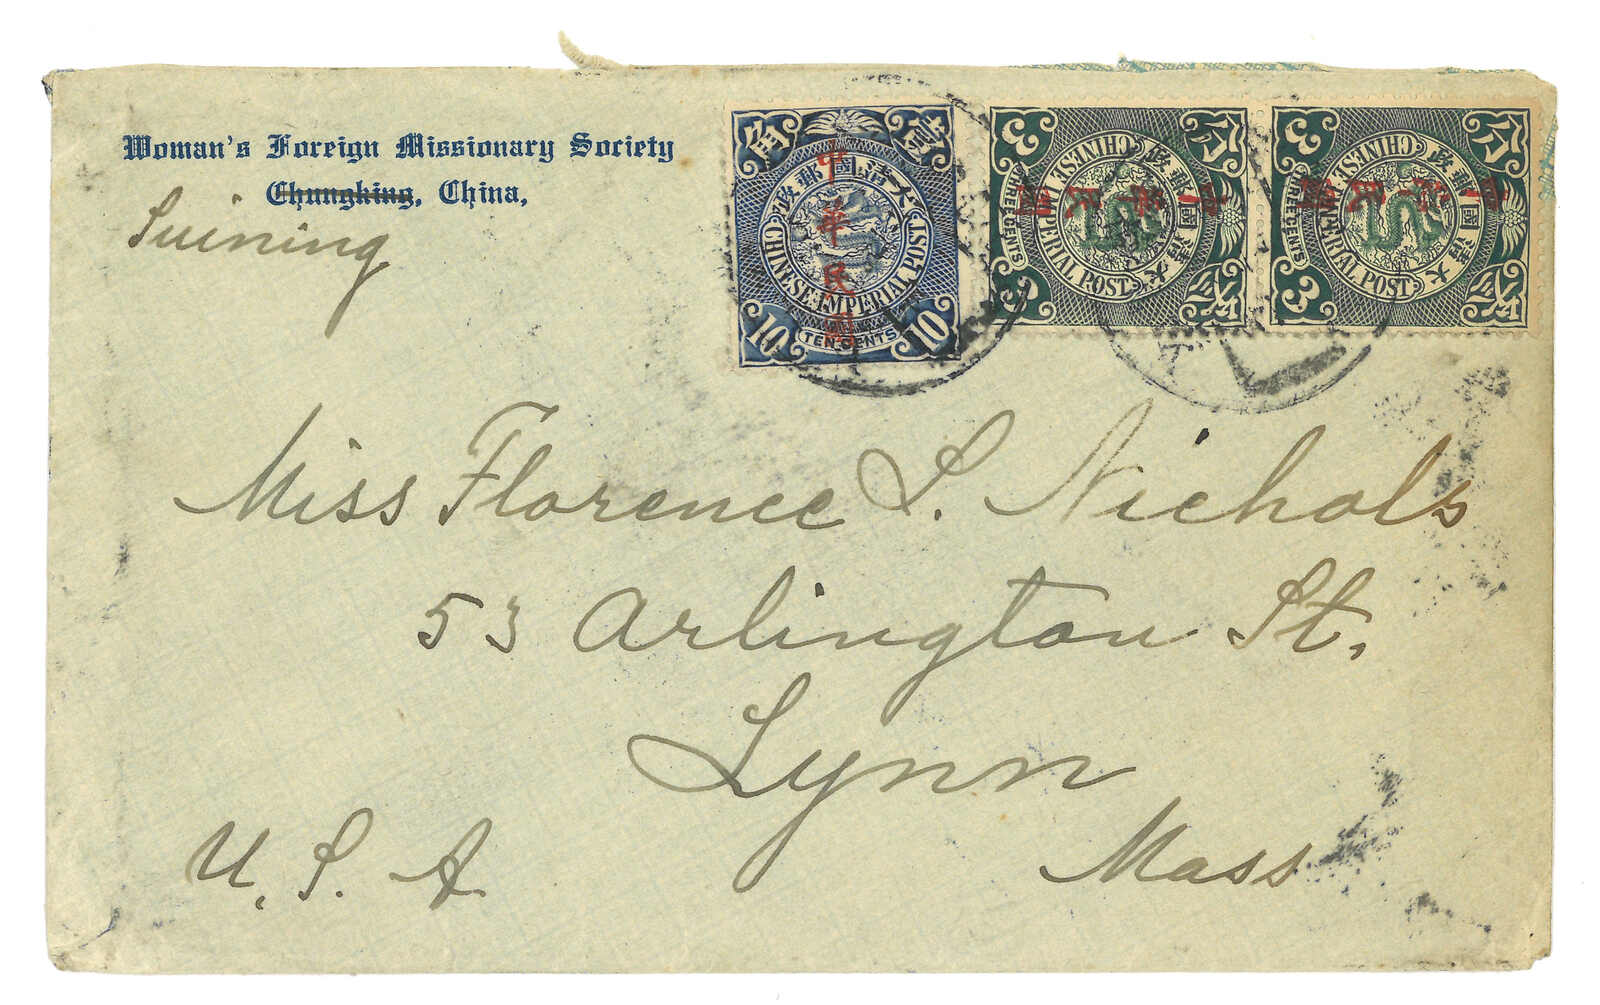 Woman's Foreign Missionary Society
Chungking, China,
Suining
角 壹
大清國郵政
中華民國
CHINESE IMPERIAL POST
10 TEN CENTS 10
3 分
大清國郵政
中華民國
CHINESE IMPERIAL POST
THREE CENTS
3
3 分
大清國郵政
中華民國
CHINESE IMPERIAL POST
THREE CENTS
3
Miss Florence L. Nichols
53 Arlington St.
Lynn
Mass
U.S.A